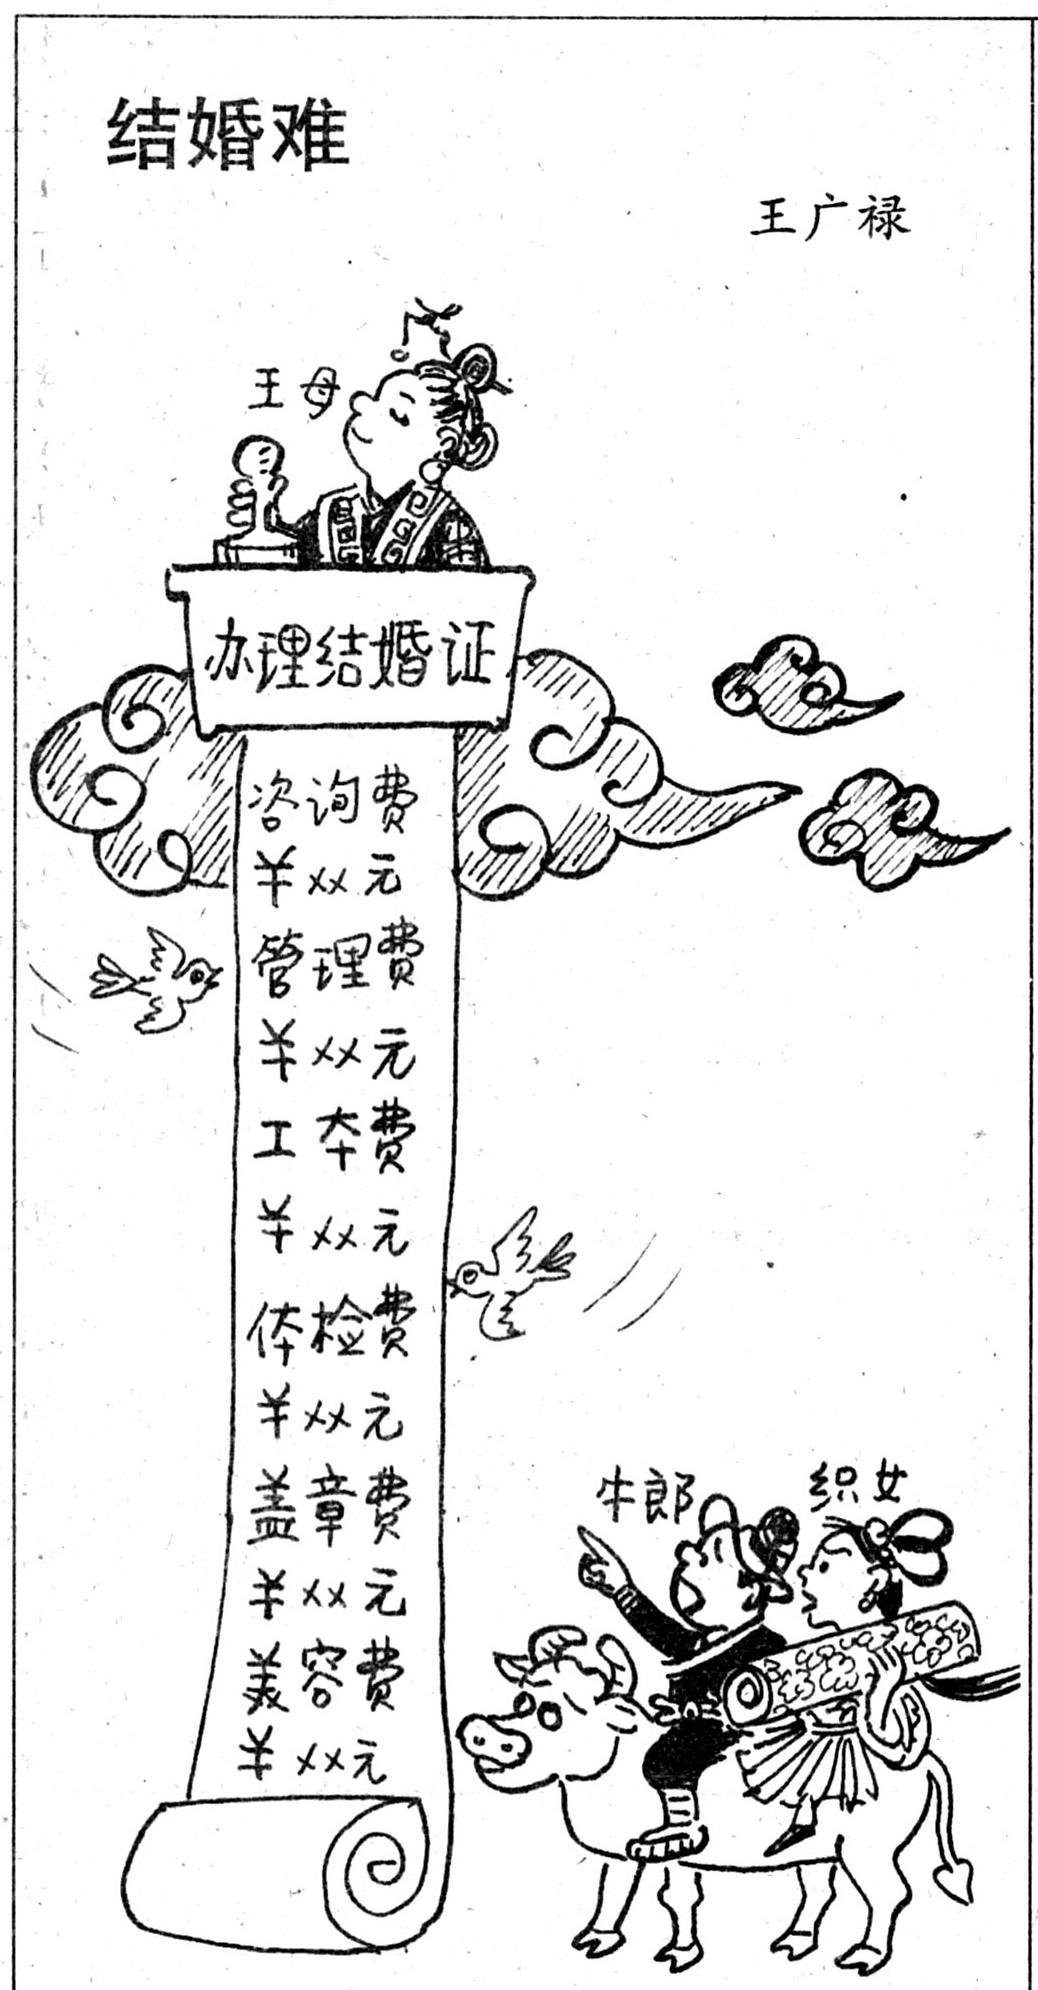 结婚难
王广禄
王母
办理结婚证
咨询费
¥××元
管理费
¥××元
工本费
¥××元
体检费
¥××元
盖章费
¥××元
美容费
¥××元
牛郎
织女